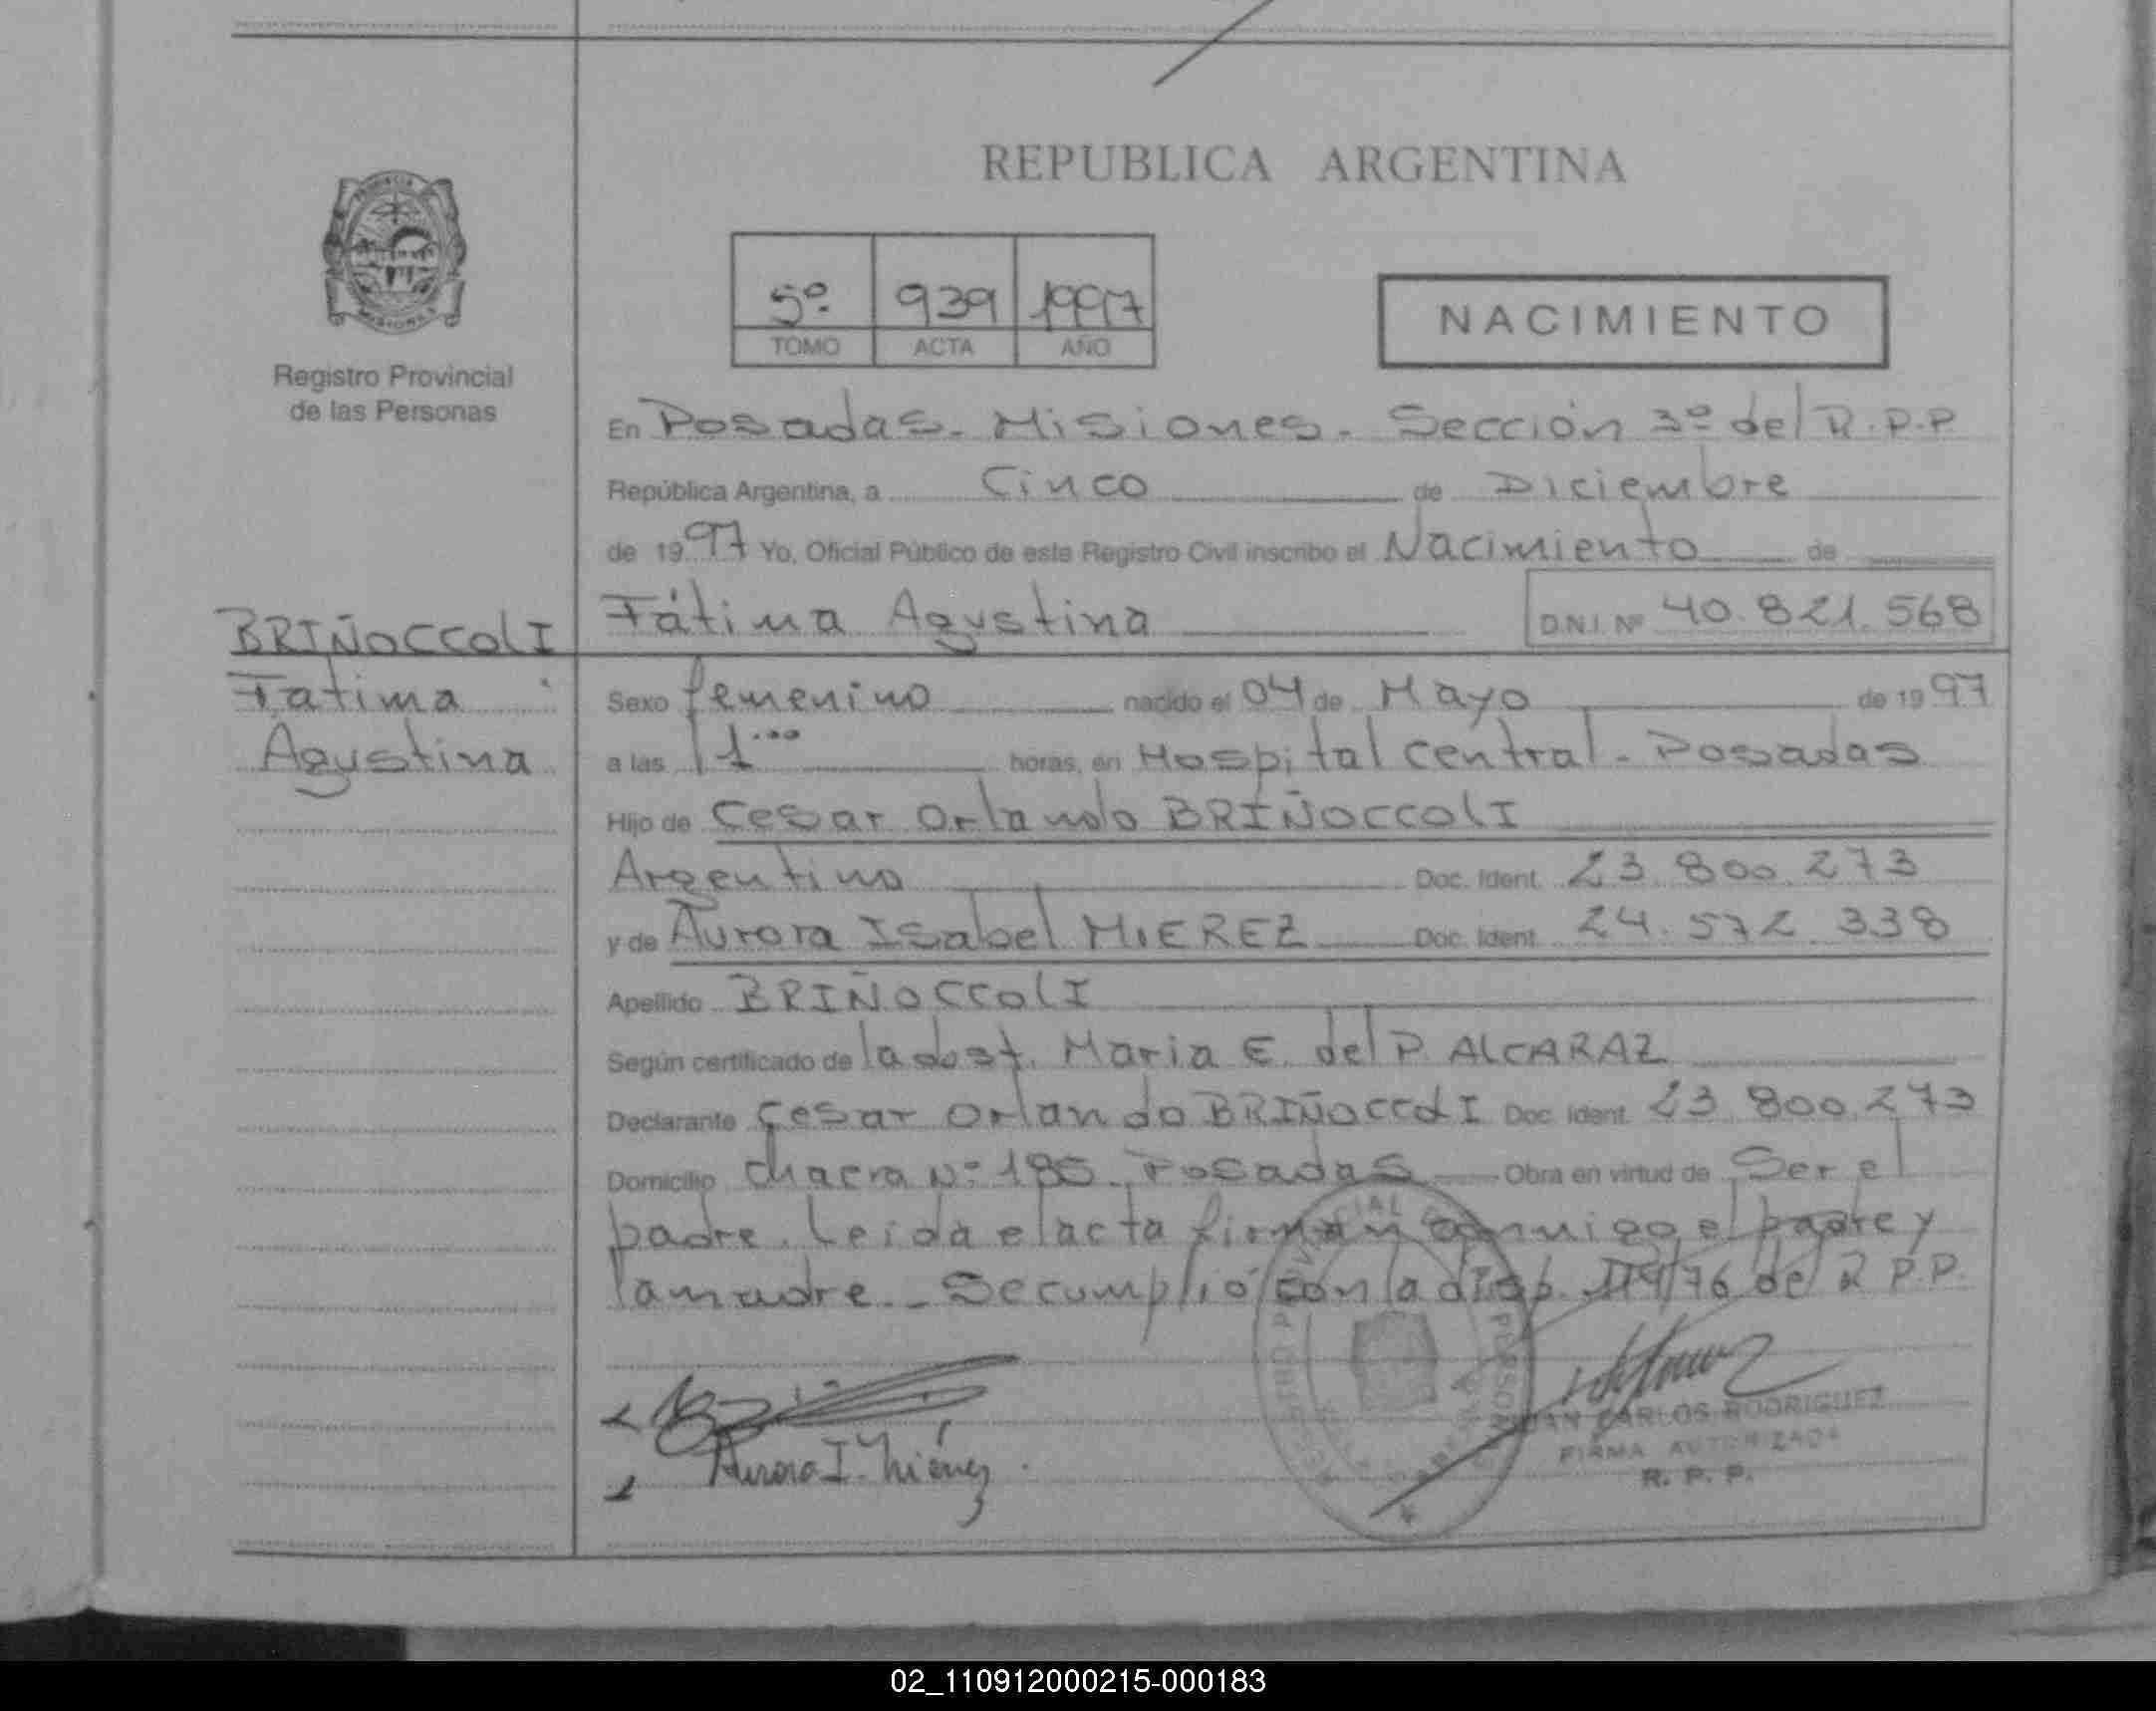 REPUBLICA ARGENTINA
5º 939 1997
TOMO ACTA AÑO
NACIMIENTO
Registro Provincial
de las Personas
En Posadas - Misiones - Sección 3º del R.P.P
República Argentina, a Cinco de Diciembre
de 1997 Yo, Oficial Público de este Registro Civil inscribo el Nacimiento de
Fátima Agustina D.N.I. Nº 40.821.568
BRIÑOCCOLI
Fatima
Agustina
Sexo femenino nacido el 04 de Mayo de 1997
a las 11 horas, en Hospital Central - Posadas
Hijo de Cesar Orlando BRIÑOCCOLI
Argentino Doc. Ident. 23.800.273
y de Aurora Isabel MIEREZ Doc. Ident. 24.572.338
Apellido BRIÑOCCOLI
Según certificado de la obst. Maria E. del P. ALCARAZ
Declarante Cesar Orlando BRIÑOCCOLI Doc. Ident. 23.800.273
Domicilio Chacra Nº 185 Posadas Obra en virtud de Ser el
padre. Leida el acta firman conmigo el padre y
la madre. - Se cumplió con la disp. 114/76 del R.P.P.
Aurora I. Mierez
JUAN CARLOS RODRIGUEZ
FIRMA AUTORIZADA
R. P. P.
02_110912000215-000183